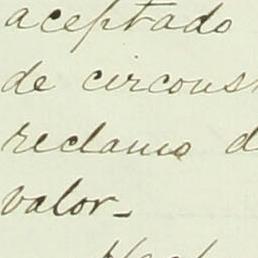 aceptado
de circons
reclamo d
valor_